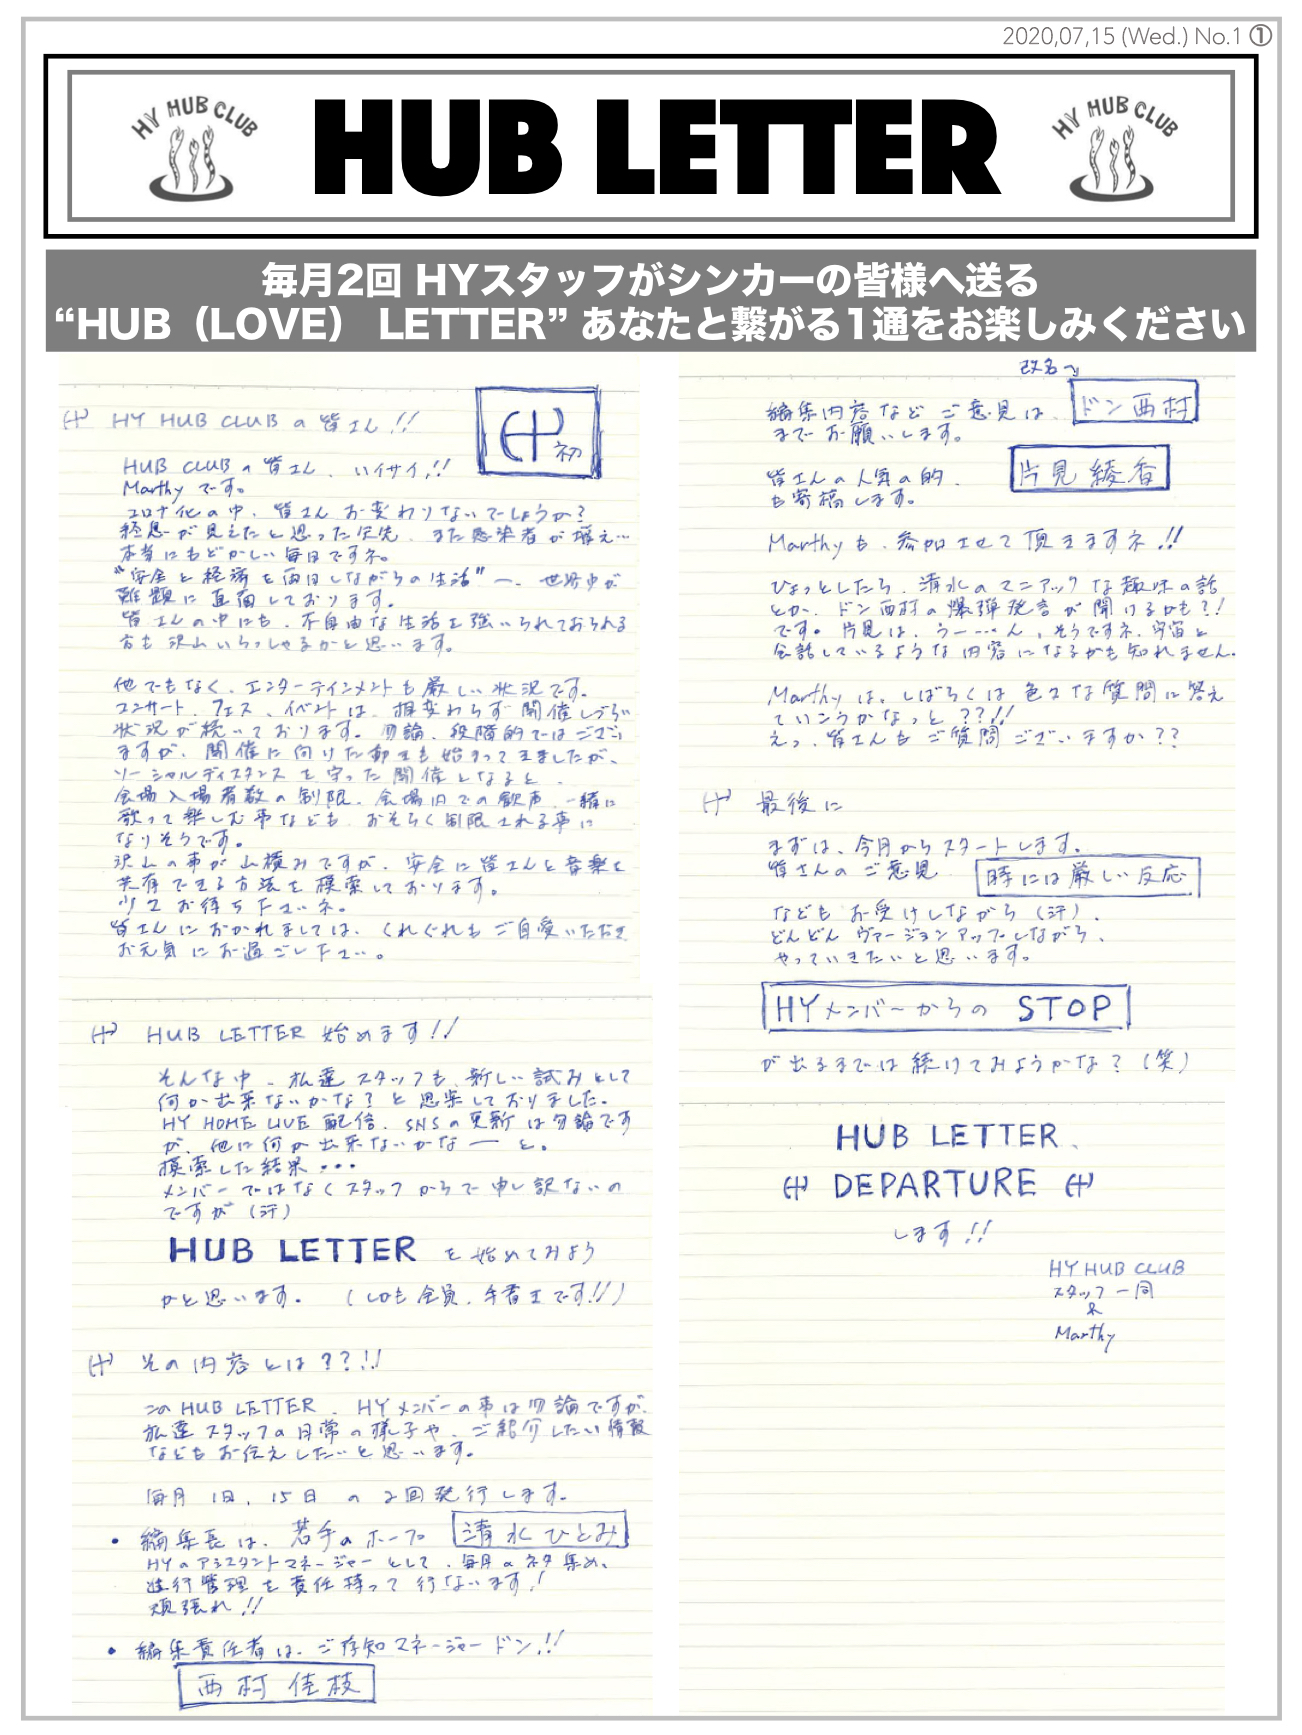 2020,07,15 (Wed.) No.1 ①
HY HUB CLUB
HUB LETTER
HY HUB CLUB
毎月2回 HYスタッフがシンカーの皆様へ送る
“HUB（LOVE） LETTER” あなたと繋がる1通をお楽しみください
HY HUB CLUBの皆さん!!
初
HUB CLUBの皆さん、ハイサイ!!
Marthyです。
コロナ化の中、皆さんお変わりないでしょうか?
終息が見えたと思った矢先、また感染者が増え…
本当にもどかしい毎日ですネ。
"安全と経済を両立しながらの生活"へ、世界中が
難題に直面しております。
皆さんの中にも、不自由な生活を強いられておられる
方も沢山いらっしゃるかと思います。
他でもなく、エンターテインメントも厳しい状況です。
コンサート、フェス、イベントは、相変わらず開催しづらい
状況が続いております。勿論、段階的ではござい
ますが、開催に向けた動きも始まってきましたが、
ソーシャルディスタンスを守った開催となると、
会場入場者数の制限、会場内での歓声、一緒に
歌って楽しむ事なども、おそらく制限される事に
なりそうです。
沢山の事が山積みですが、安全に皆さんと音楽を
共有できる方法を模索しております。
少々お待ち下さいネ。
皆さんにおかれましては、くれぐれもご自愛いただき
お元気にお過ごし下さい。
HUB LETTER 始めます!!
そんな中、私達スタッフも、新しい試みとして
何か出来ないかな?と思案しておりました。
HY HOME LIVE 配信、SNSの更新は勿論です
が、他に何か出来ないかなーと。
模索した結果・・・
メンバーではなくスタッフからで申し訳ないの
ですが（汗）
HUB LETTER を始めてみよう
かと思います。（しかも全員、手書きです!!）
その内容とは??!!
このHUB LETTER、HYメンバーの事は勿論ですが、
私達スタッフの日常の様子や、ご紹介したい情報
などもお伝えしたいと思います。
毎月1日、15日の2回発行します。
• 編集長は、若手のホープ 清水ひとみ
HYのアシスタントマネージャーとして、毎月のネタ集め、
進行管理を責任持って行ないます!
頑張れ!!
• 編集責任者は、ご存知マネージャードン!!
西村佳枝
改名→
編集内容などご意見は、ドン西村
までお願いします。
皆さんの人気の的、片見綾香
も寄稿します。
Marthyも、参加させて頂きますネ!!
ひょっとしたら、清水のマニアックな趣味の話
とか、ドン西村の爆弾発言が聞けるかも?!
です。片見は、うー……ん、そうですネ、宇宙と
会話しているような内容になるかも知れません。
Marthyは、しばらくは色々な質問に答え
ていこうかなっと??!!
えっ、皆さんもご質問ございますか??
最後に
まずは、今月からスタートします。
皆さんのご意見 時には厳しい反応
などもお受けしながら（汗）、
どんどんヴァージョンアップしながら、
やっていきたいと思います。
HYメンバーからの STOP
が出るまでは続けてみようかな?（笑）
HUB LETTER、
DEPARTURE
します!!
HY HUB CLUB
スタッフ一同
&
Marthy